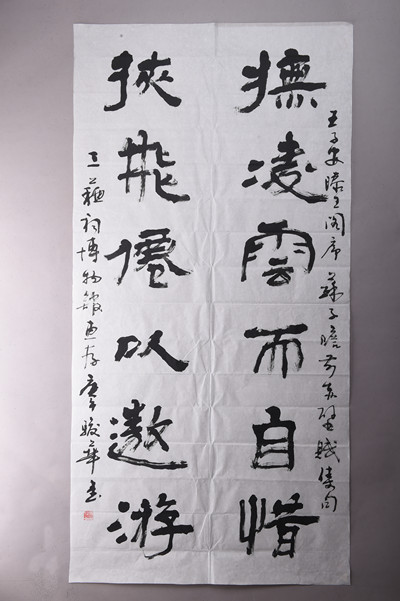 王子安滕王阁序 蘇子瞻前赤壁賦集句
撫凌雲而自惜
挾飛僊以遨游
三蘇祠博物館惠存 華書